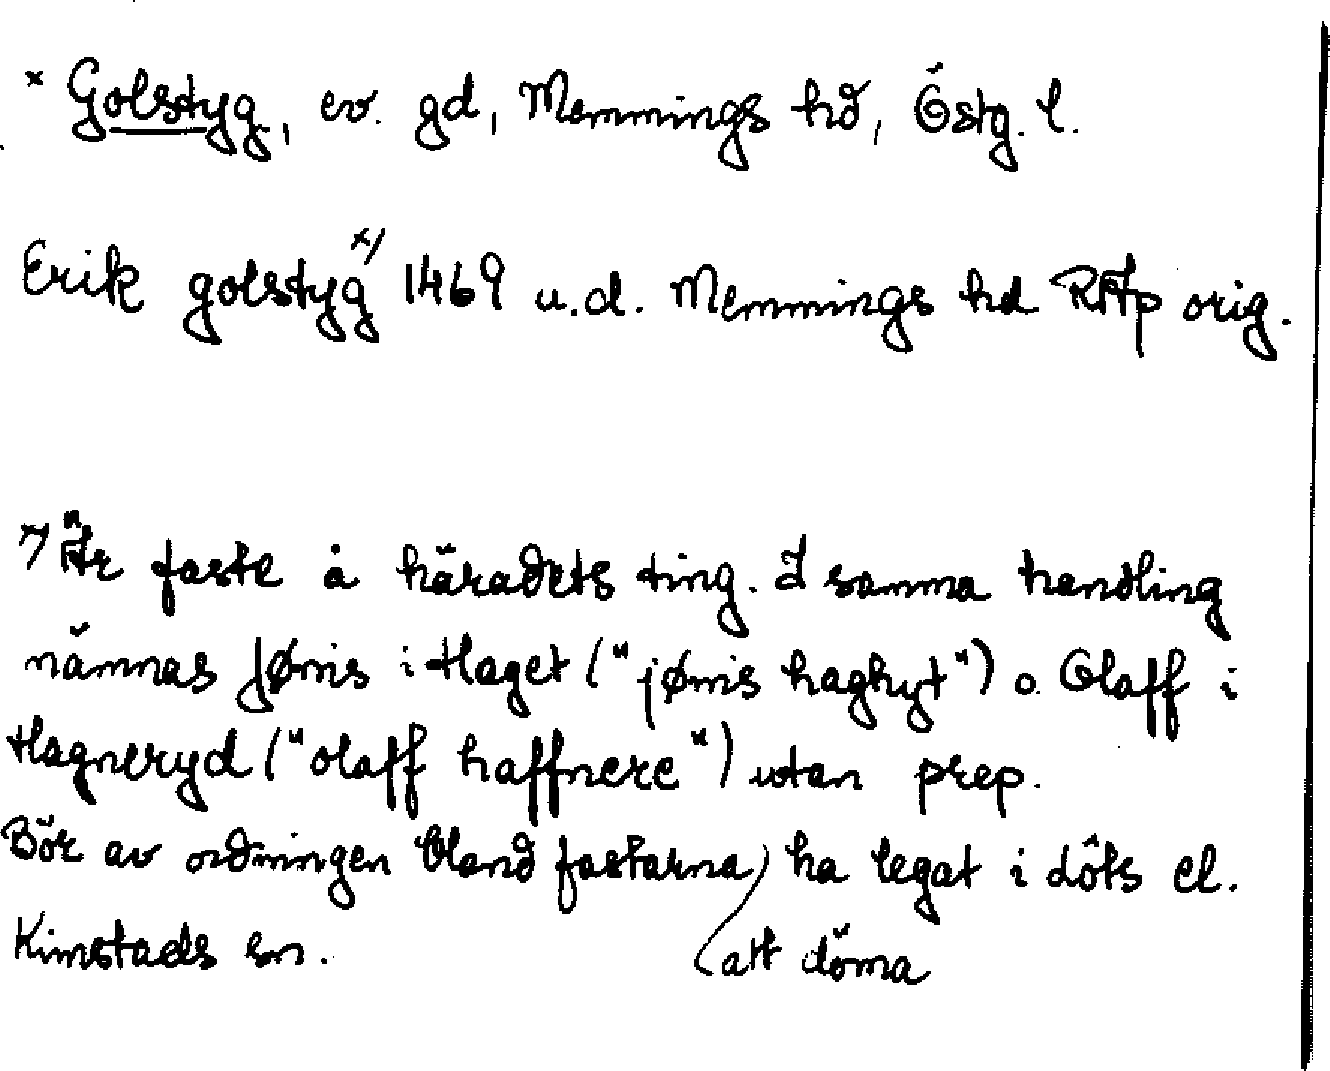 x Golstyg, ev. gd, Memmings hd, Östg. l.
Erik golstyg x/ 1469 u.d. Memmings hd RAp orig.
x/ Är faste å häradets ting. I samma handling
nämnas Jønis i Haget ("jønis haghyt") o. Olaff i
Hagneryd ("olaff haffnere") utan prep.
Bör av ordningen bland fastarna ha legat i Löts el.
Kimstads sn. att döma